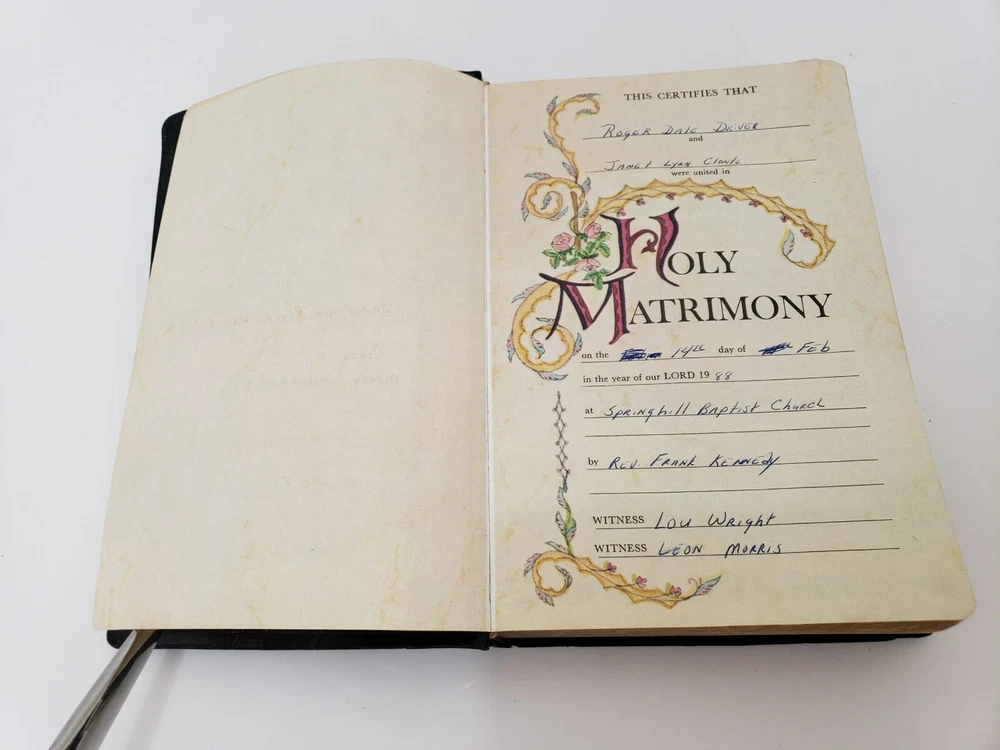 THIS CERTIFIES THAT
Roger Dale Driver
and
Janet Lynn
were united in
HOLY
MATRIMONY
on the 14th day of Feb
in the year of our LORD 19 88
at Springhill Baptist Church
by Rev. Frank Kennedy
WITNESS Lou Wright
WITNESS LEON MORRIS